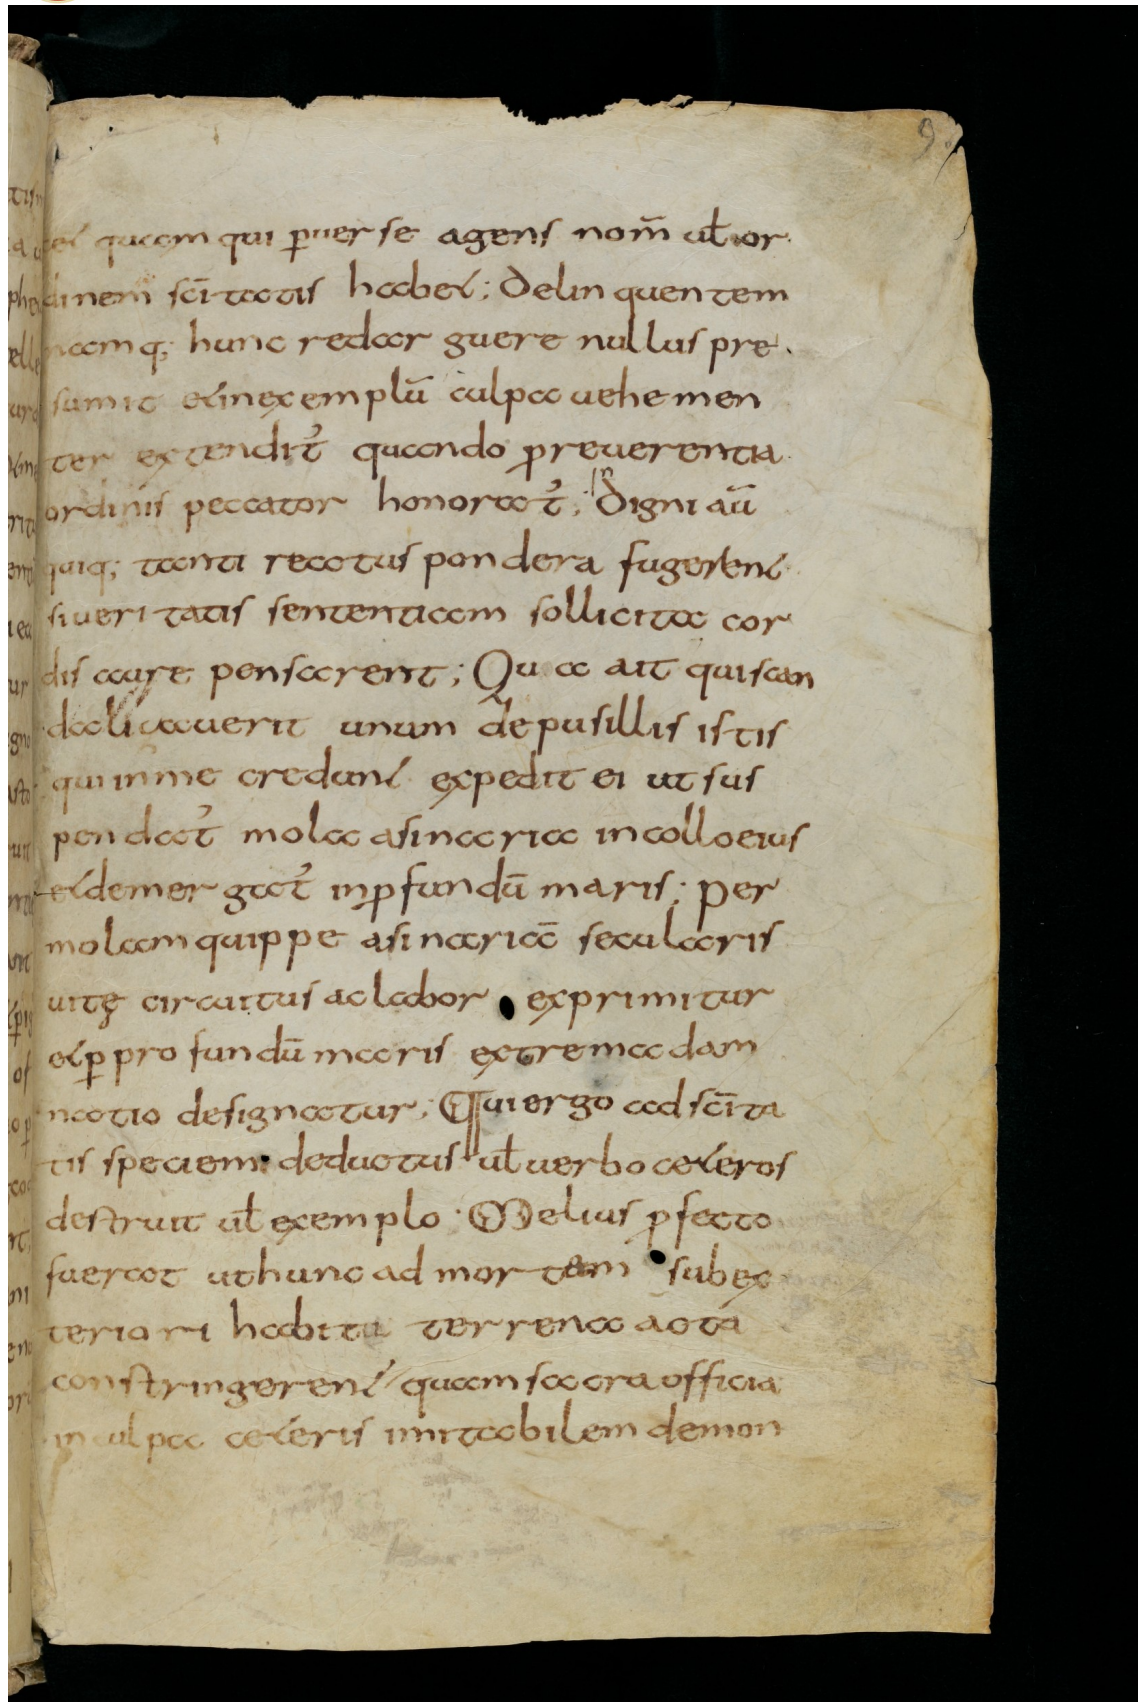 9.
cet quam qui puerse agens nom̄ ul̄ or
dinem sc̄itatis habet; Delinquentem
namq; hunc redarguere nullus pre
sumit et in exemplū culpa uehemen
ter extendit᷑ quando pro reuerentia
ordinis peccator honorat᷑; Indigni aū
quiq; tanti reatus pondera fugerent
si ueritatis sententiam sollicita cor
dis aure pensarent; Qua ait qui scan
dalizauerit unum de pusillis istis
qui in me credunt expedit ei ut sus
pendat᷑ mola asinaria in collo eius
et demergat᷑ in pfundū maris; Per
molam quippe asinariā secularis
uitę circuitus ac labor exprimitur
et p profundū maris extrema dam
natio designatur; Qui ergo ad sc̄ita
tis speciem deductus ul̄ uerbo ceteros
destruit ul̄ exemplo. Melius pfecto
fuerat ut hunc ad mortem sub ex
teriori habitu terrena acta
constringerent quam sacra officia
in culpa ceteris imitabilem demon